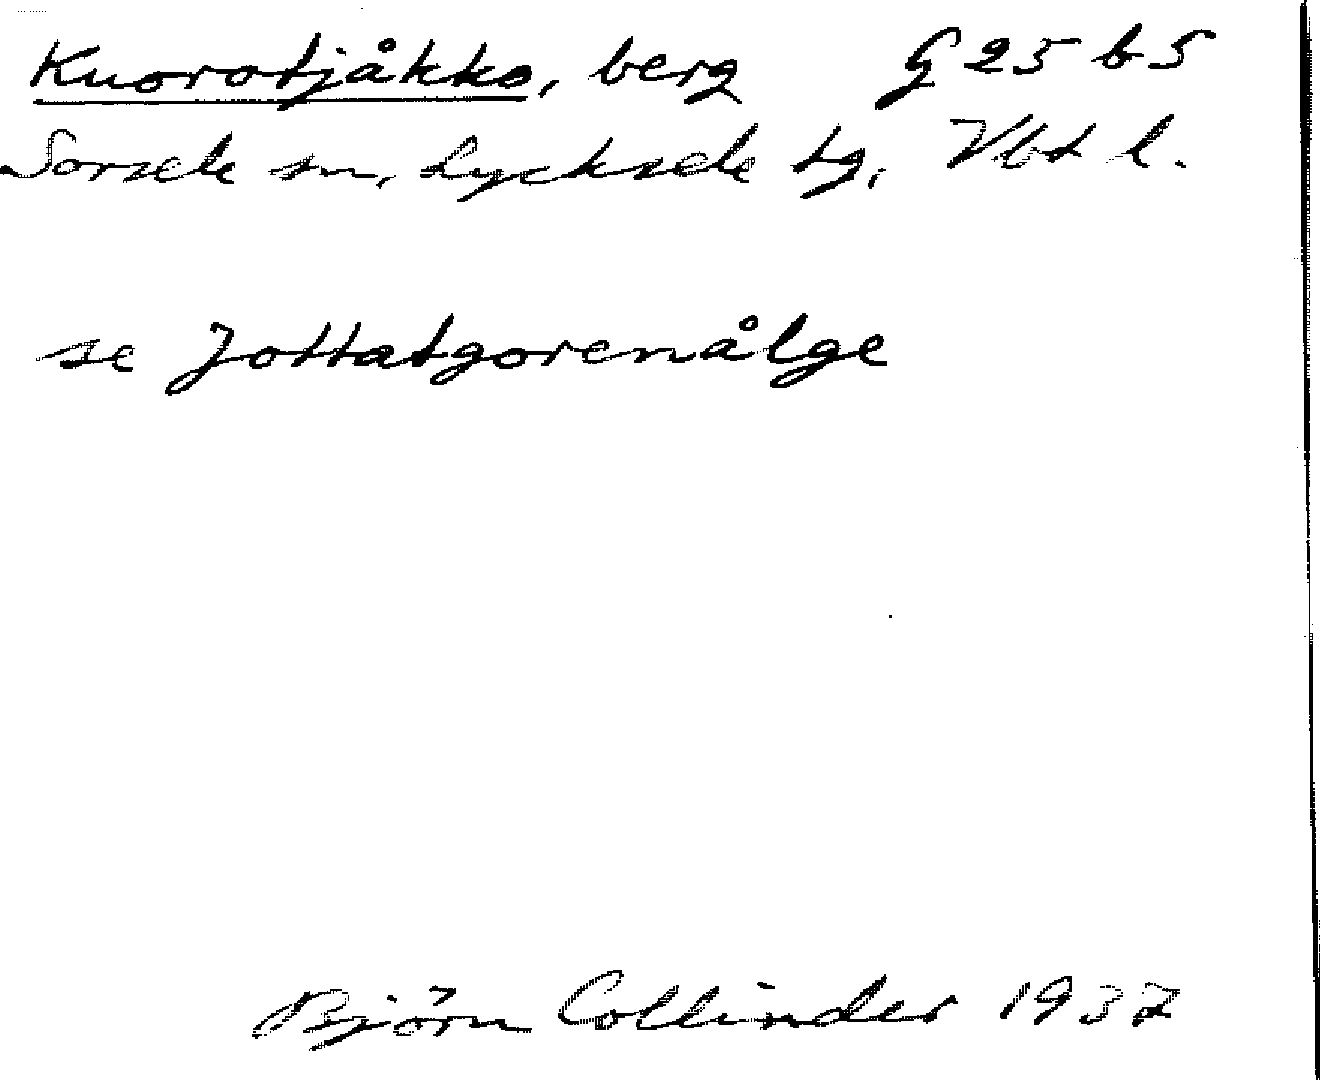 Kuorotjåkko, berg G 25 b 5
Sorsele sn, Lycksele tg, Vbt l.
se Jottatgorenålge
Björn Collinder 1937